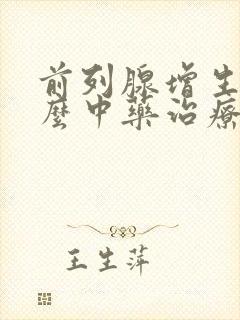 前列腺增生
麼中藥治療
王生萍